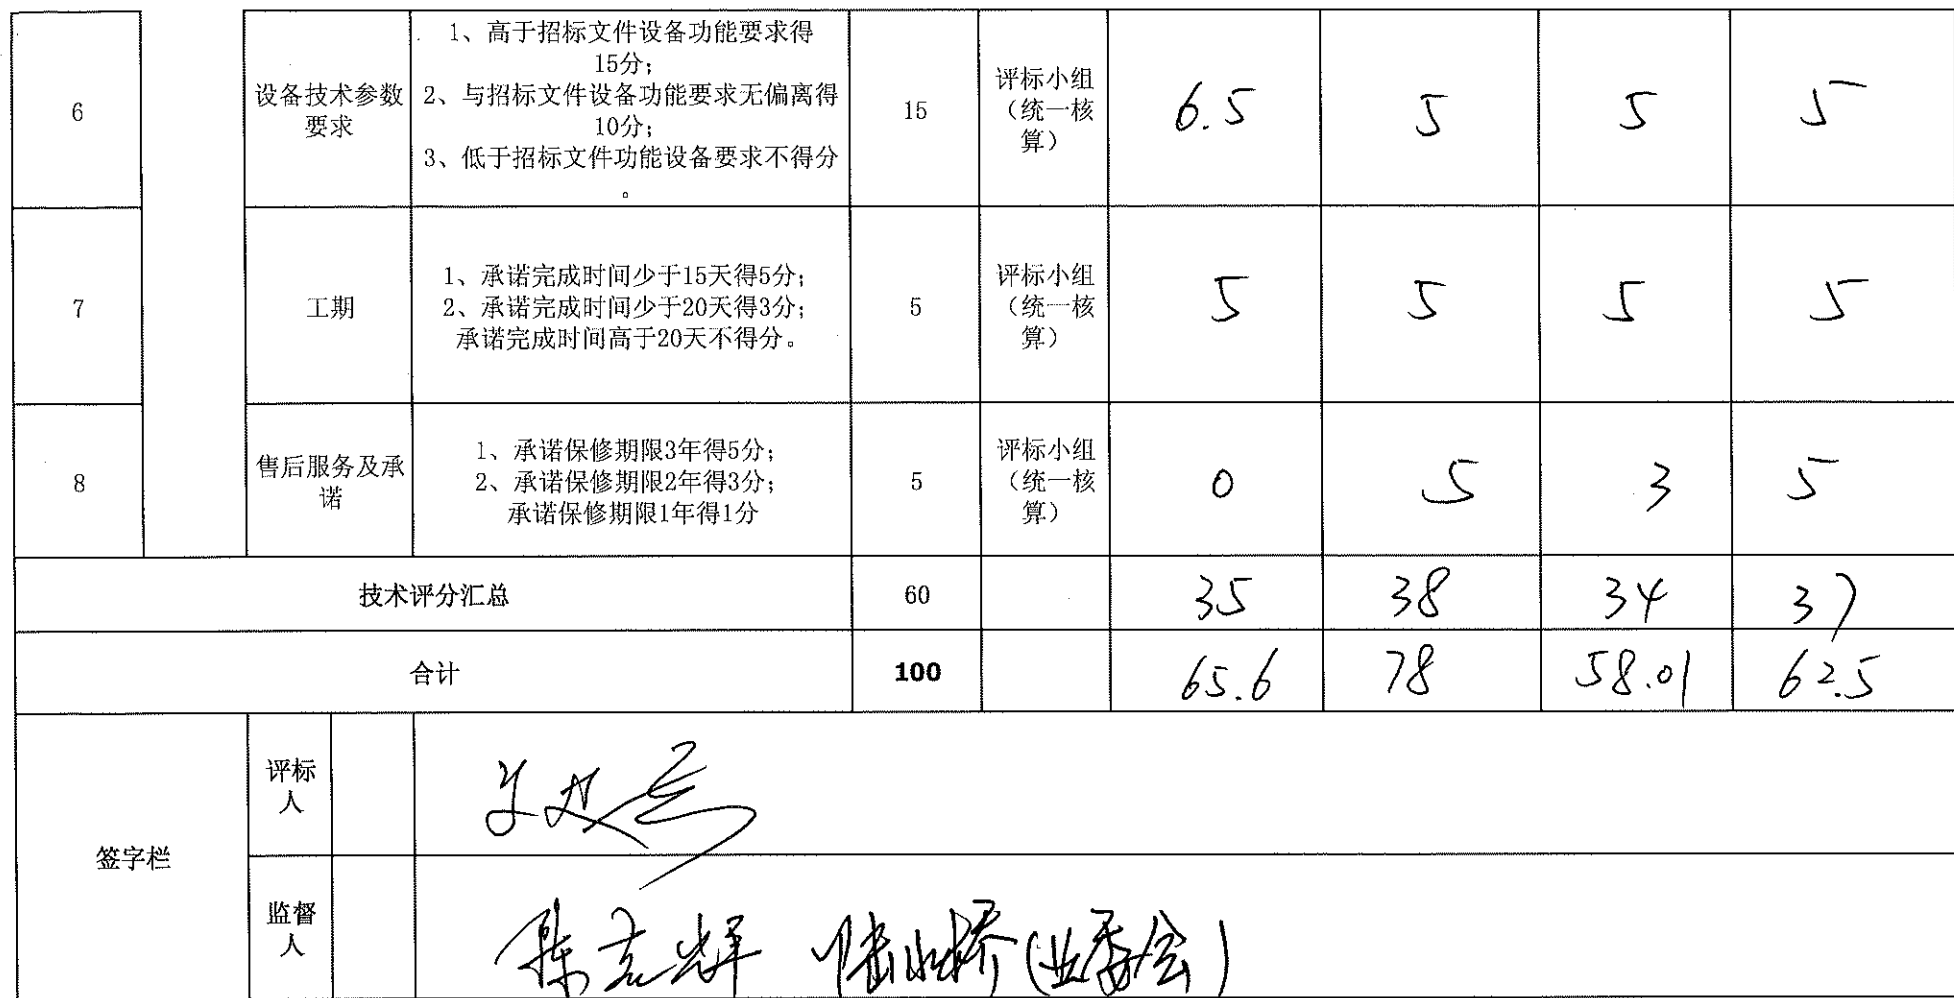 6
设备技术参数
要求
1、高于招标文件设备功能要求得
15分；
2、与招标文件设备功能要求无偏离得
10分；
3、低于招标文件功能设备要求不得分
。
15
评标小组
（统一核
算）
6.5
5
5
5
7
工期
1、承诺完成时间少于15天得5分；
2、承诺完成时间少于20天得3分；
承诺完成时间高于20天不得分。
5
评标小组
（统一核
算）
5
5
5
5
8
售后服务及承
诺
1、承诺保修期限3年得5分；
2、承诺保修期限2年得3分；
承诺保修期限1年得1分
5
评标小组
（统一核
算）
0
5
3
5
技术评分汇总
60
35
38
34
37
合计
100
65.6
78
58.01
62.5
签字栏
评标
人
监督
人
(业委会)